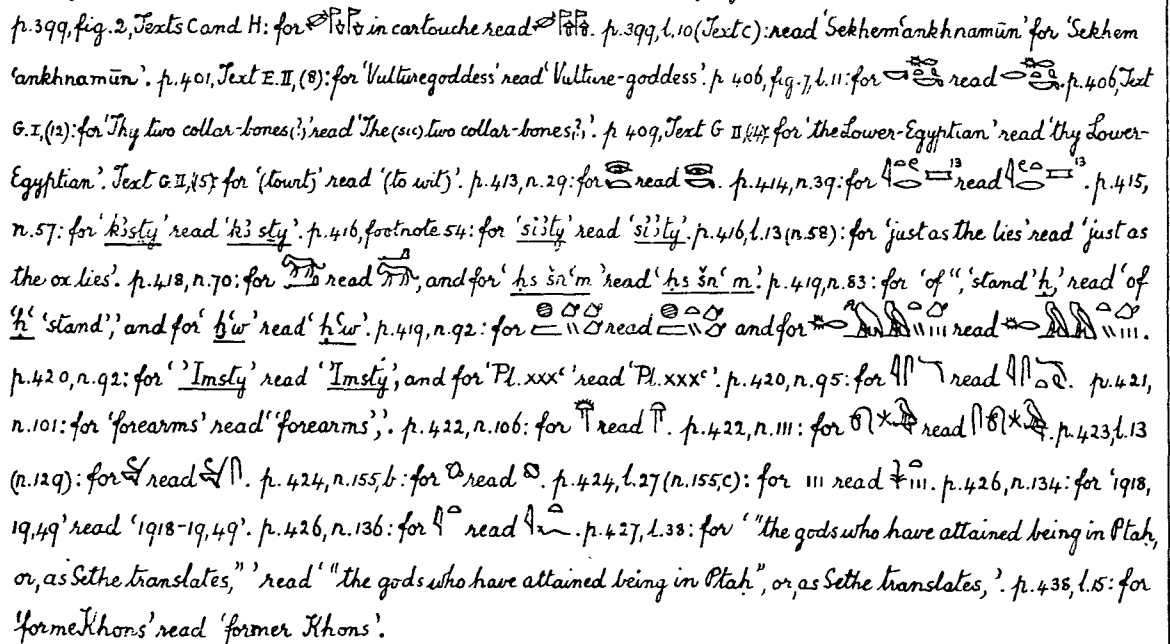 p.399, fig.2, Texts C and H: for in cartouche read . p.399, l.10 (Text C): read 'Sekhem'ankhnamūn' for 'Sekhem
'ankhnamūn'. p.401, Text E.II,(8): for 'Vulturegoddess' read 'Vulture-goddess'. p 406, fig.7, l.11: for read . p.406, Text
G.I,(12): for 'Thy two collar-bones(?)' read 'The (sic) two collar-bones(?)'. p 409, Text G II,(4): for 'the Lower-Egyptian' read 'thy Lower-
Egyptian'. Text G.II,(5): for '(to unt)' read '(to wit)'. p.413, n.29: for read . p.414, n.39: for 13 read 13. p.415,
n.57: for 'kꜣsty' read 'kꜣ sty'. p.416, footnote 54: for read . p.416, l.13 (n.58): for 'just as the lies' read 'just as
the ox lies'. p.418, n.70: for read , and for 'ḥs šn'm' read 'ḥs šn'm'. p.419, n.83: for 'of “, 'stand' ḥ,' read 'of
'ḥ' 'stand',' and for read . p.419, n.92: for read and for read .
p.420, n.92: for 'ꜣImsty' read 'ꜣImsty', and for 'Pl. xxxᶜ' read 'Pl. xxxᶜ'. p.420, n.95: for read . p.421,
n.101: for 'forearms' read ''forearms','. p.422, n.106: for read . p.422, n.111: for read . p.423, l.13
(n.129): for read . p.424, n.155, b: for read . p.424, l.27 (n.155, c): for read . p.426, n.134: for '1918,
19,49' read '1918-19,49'. p.426, n.136: for read . p.427, l.38: for '"the gods who have attained being in Ptaḥ,
or, as Sethe translates," ' read '"the gods who have attained being in Ptaḥ", or, as Sethe translates, '. p.438, l.15: for
'formeKhons' read 'former Khons'.